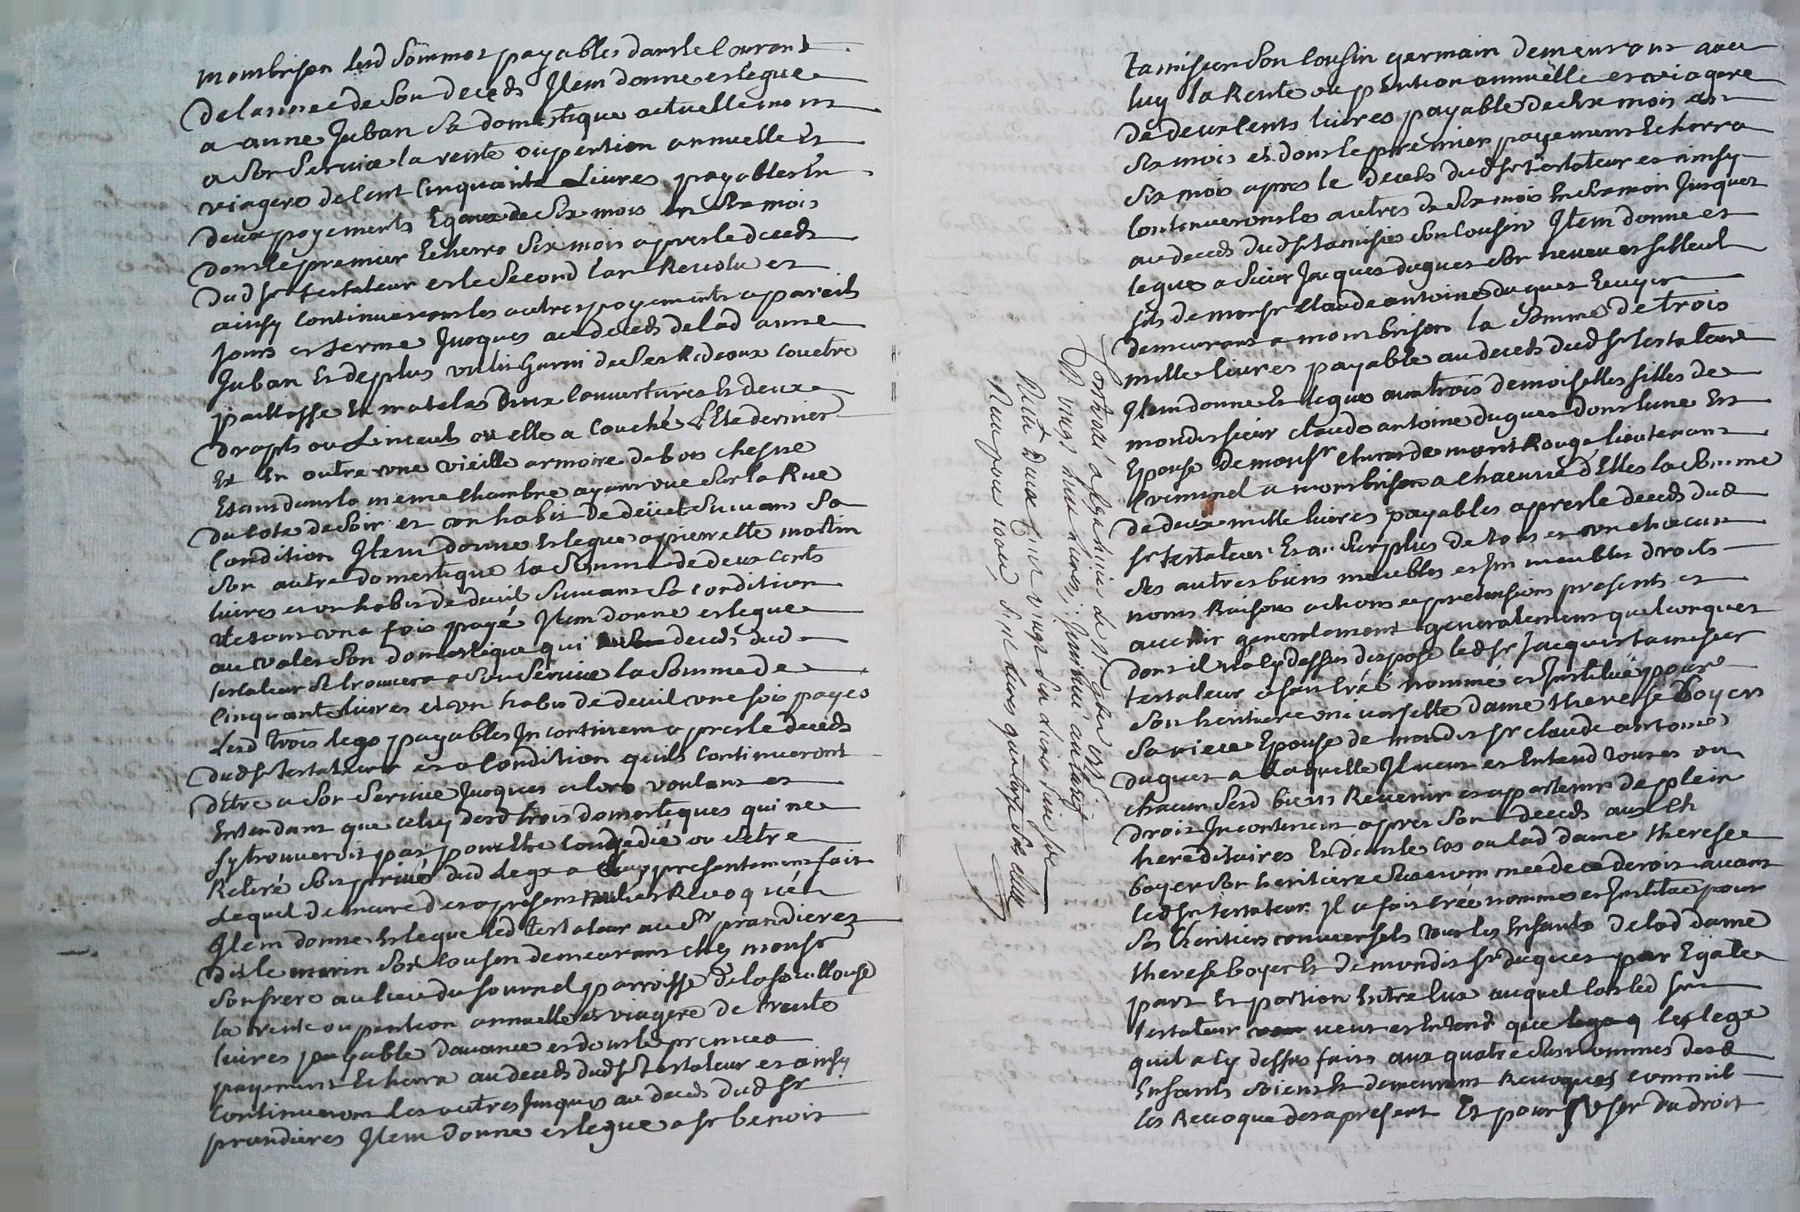 montbrison lesd sommes payables dans le courant
de lannee de son deceds Item donne et legue
a anne Juban sa domestique actuellement
a son service la rente ou pention annuelle et
viagere de cent cinquante Livres payables en
deux payements Egaux de six mois en six mois
dont le premier Echerra six mois apres le deceds
dud sr testateur et le second lan Revolu et
ainsy continueront les autres payements a pareils
jours et terme Jusques au deceds de lad anne
Juban Et de plus un lit garni de ses Rideaux couetre
paillasse Et matelas deux couvertures Et deux
drapts ou Linceuls ou elle a couché L'Eté dernier
Et En outre une vieille armoire de bois chesne
Estant dans la meme chambre ayant vue sur la Rue
du coté de soir et un habit de deüil suivant sa
condition Item donne et legue a pierrette mathin
son autre domestique la somme de deux cents
livres et un habit de deuil suivant sa condition
le tout une fois payé Item donne et legue
au valet son domestique qui deceds dud
testateur se trouvera a son service la somme de
cinquante livres et un habit de deuil une fois payés
Lesd trois legs payables Incontinent apres le deceds
dud sr testateur et a condition quils continueront
detre a son service Jusques alors voulant et
Entendant que celuy desd trois domestiques qui ne
sy trouveroit pas pour etre congedié ou setre
Retiré soit privé dud legs a luy presentement fait
Lequel demeure des apresent nul et Revoqué
Item donne et legue led testateur au sr prandieres
dit le morin son cousin demeurant chez monsr
son frere au lieu du fournel parroisse de la fouillouse
la rente ou pention annuelle et viagere de trente
livres payable davance et dont le premier
payement Echerra au deceds dud sr testateur et ainsy
continueront les autres Jusques au deceds dud sr
prandieres Item donne et legue a sr benoit
tamisier son cousin germain demeurant avec
luy la Rente ou pention annuelle et viagere
de deux cents livres payable de six mois en
six mois et dont le premier payement Echerra
six mois apres le deceds dud sr testateur et ainsy
continueront les autres de six mois En six mois Jusques
au deceds dud sr tamisier son cousin Item donne et
legue a sieur Jacques duguet son neveu et filleul
fils de monsr claude antoine duguet Ecuyer
demeurant a montbrison la somme de trois
mille livres payable au deceds dud sr testateur
Item donne Et legue aux trois demoiselles filles de
mondit sieur claude antoine duguet dont lune Est
Epouse de monsr de montRouge lieutenant
criminel a montbrison a chacune d'Elles la somme
de deux mille livres payables apres le deceds dud
sr testateur Et au surplus de tous et un chacun
ses autres biens meubles et Immeubles droits
noms Raisons actions et pretensions presents et
avenir generalement generalement quelconques
dont il n'a cy dessus disposé led sr Jacques tamisier
testateur a fait créé nommé et Institué pour
son heritiere universelle dame therese boyer
sa niece Epouse de mondit sr claude antoine
duguet a Laquelle Il veut et Entend tous et un
chacun sesd biens Revenir et apartenir de plein
droit Incontinent apres son deceds aux ch
hereditaires Et dans le cas ou lad dame therese
boyer son heritiere susnommée decederoit avant
led sr testateur Il a fait créé nommé et Institué pour
ses heritiers universels tous les Enfants de lad dame
therese boyer Et de mondit sr duguet par Egale
part Et portion Entre Eux auquel cas led sr
testateur veut et Entend que les legs
quil a cy dessus faits aux quatre susnommés desd
Enfants soient Et demeurent Revoqués comme il
les Revoque des apresent Et pour user du droit
Controlé a
Reçu